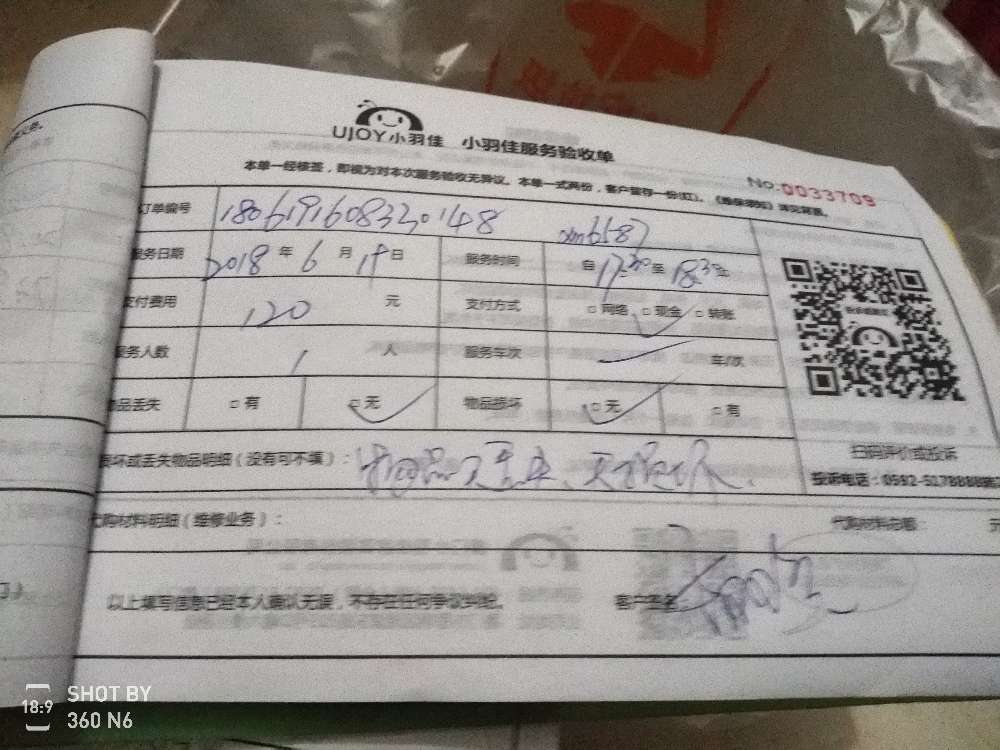 UJOY小羽佳 小羽佳服务验收单
本单一经核签，即视为对本次服务验收无异议。本单一式两份，客户留存一份(红)。《维保须知》详见背面。
No.0033709
订单编号 1806191608330148 xm6587
服务日期 2018年6月19日 服务时间 自17:30至18:30止
支付费用 120元 支付方式 □网络 □现金 □转账
服务人数 1人 服务车次 车/次
物品丢失 □有 □无 物品损坏 □无 □有
扫码评价或投诉
损坏或丢失物品明细（没有可不填）：
投诉电话：0592-5178888
代购材料明细（维修业务）： 代购材料总额： 元
以上填写信息已经本人确认无误，不存在任何争议纠纷。 客户签名：
18:9 SHOT BY
360 N6